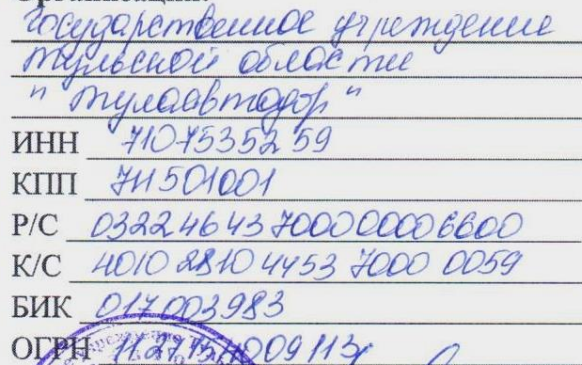 Организация:
государственное учреждение
тульской области
" тулаавтодор "
ИНН 71075352 59
КПП 711501001
Р/С 03224643 7000 0000 6600
К/С 4010 2810 4453 7000 0059
БИК 017003983
ОГРН 1127154009113